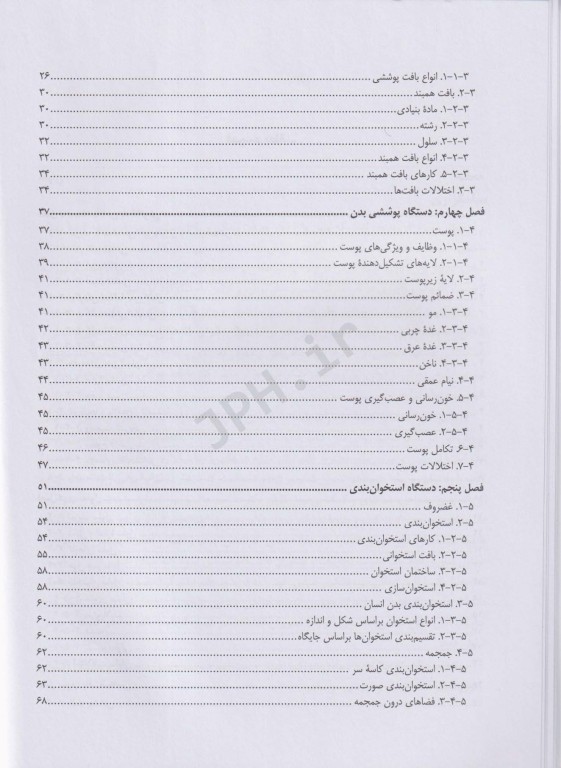 ۳-۱-۱. انواع بافت پوششی ........ ۲۶
۳-۲. بافت همبند ........ ۳۰
۳-۲-۱. مادهٔ بنیادی ........ ۳۰
۳-۲-۲. رشته ........ ۳۰
۳-۲-۳. سلول ........ ۳۲
۳-۲-۴. انواع بافت همبند ........ ۳۲
۳-۲-۵. کارهای بافت همبند ........ ۳۴
۳-۳. اختلالات بافت‌ها ........ ۳۴
فصل چهارم: دستگاه پوششی بدن ........ ۳۷
۴-۱. پوست ........ ۳۷
۴-۱-۱. وظایف و ویژگی‌های پوست ........ ۳۸
۴-۱-۲. لایه‌های تشکیل‌دهندهٔ پوست ........ ۳۹
۴-۲. لایهٔ زیرپوست ........ ۴۱
۴-۳. ضمائم پوست ........ ۴۱
۴-۳-۱. مو ........ ۴۱
۴-۳-۲. غدهٔ چربی ........ ۴۲
۴-۳-۳. غدهٔ عرق ........ ۴۳
۴-۳-۴. ناخن ........ ۴۳
۴-۴. نیام عمقی ........ ۴۴
۴-۵. خون‌رسانی و عصب‌گیری پوست ........ ۴۵
۴-۵-۱. خون‌رسانی ........ ۴۵
۴-۵-۲. عصب‌گیری ........ ۴۵
۴-۶. تکامل پوست ........ ۴۶
۴-۷. اختلالات پوست ........ ۴۷
فصل پنجم: دستگاه استخوان‌بندی ........ ۵۱
۵-۱. غضروف ........ ۵۱
۵-۲. استخوان‌بندی ........ ۵۴
۵-۲-۱. کارهای استخوان‌بندی ........ ۵۴
۵-۲-۲. بافت استخوانی ........ ۵۵
۵-۲-۳. ساختمان استخوان ........ ۵۸
۵-۲-۴. استخوان‌سازی ........ ۵۸
۵-۳. استخوان‌بندی بدن انسان ........ ۶۰
۵-۳-۱. انواع استخوان براساس شکل و اندازه ........ ۶۰
۵-۳-۲. تقسیم‌بندی استخوان‌ها براساس جایگاه ........ ۶۰
۵-۴. جمجمه ........ ۶۲
۵-۴-۱. استخوان‌بندی کاسهٔ سر ........ ۶۲
۵-۴-۲. استخوان‌بندی صورت ........ ۶۳
۵-۴-۳. فضاهای درون جمجمه ........ ۶۸
JPH.ir